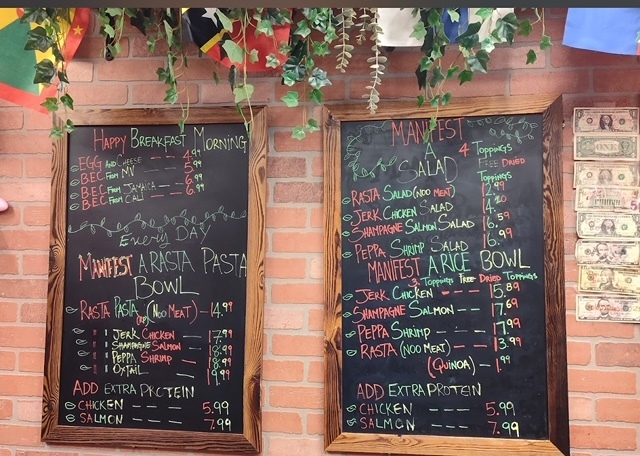 HAPPY BREAKFAST MORNING
EGG AND CHEESE — — 4.99
BEC FROM NY — — 5.99
BEC FROM JAMAICA — 6.99
BEC FROM CALI — — 6.99
EVERY DAY
MANIFEST A RASTA PASTA
BOWL
RASTA PASTA (NOO MEAT) — 14.99
JERK CHICKEN — — 17.99
SHAMPAGNE SALMON — — 18.99
PEPPA SHRIMP — — 18.99
OXTAIL 19.99
ADD EXTRA PROTEIN
CHICKEN — — — 5.99
SALMON — — — 7.99
MANIFEST
A
SALAD
4 TOPPINGS
FREE DRIED
TOPPINGS
RASTA SALAD (NOO MEAT) 12.99
JERK CHICKEN SALAD
SHAMPAGNE SALMON SALAD 16.59
PEPPA SHRIMP SALAD 16.99
MANIFEST A RICE BOWL
3 TOPPINGS FREE DRIED TOPPINGS
JERK CHICKEN — — — 15.89
SHAMPAGNE SALMON — — 17.69
PEPPA SHRIMP — — — 17.99
RASTA (NOO MEAT) — — 13.99
(QUINOA) — 1.99
ADD EXTRA PROTEIN
CHICKEN — — — 5.99
SALMON — — — 7.99